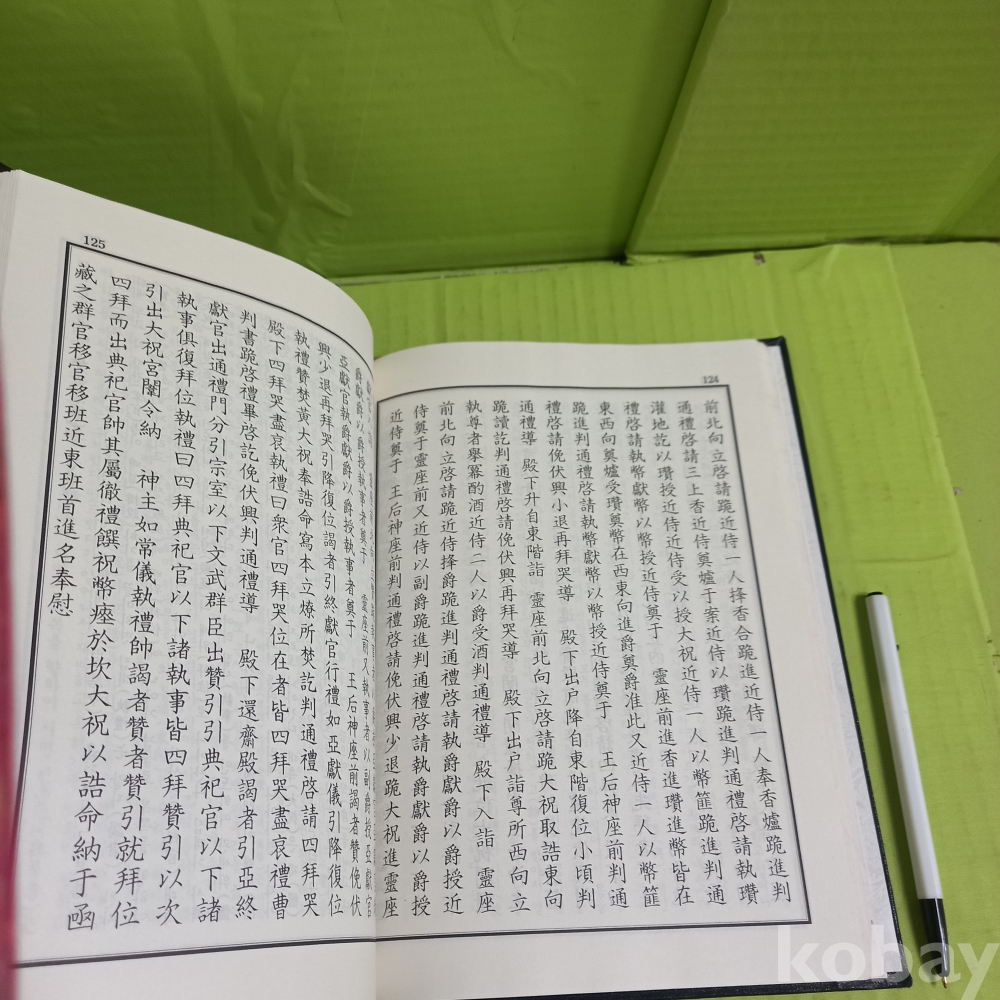 124
前北向立啓請跪近侍一人捧香合跪進近侍一人奉香爐跪進判
通禮啓請三上香近侍奠爐于案近侍以瓚跪進判通禮啓請執瓚
灌地訖以瓚授近侍近侍受以授大祝近侍一人以幣篚跪進判通
禮啓請執幣獻幣以幣授近侍奠于 靈座前進香進瓚進幣皆在
東西向奠爐受瓚奠幣在西東向進爵奠爵准此又近侍一人以幣篚
跪進判通禮啓請執幣獻幣以幣授近侍奠于 王后神座前判通
禮啓請俛伏興小退再拜哭導 殿下出户降自東階復位小頃判
通禮導 殿下升自東階詣 靈座前北向立啓請跪大祝取誥東向
跪讀訖判通禮啓請俛伏興再拜哭導 殿下出户詣尊所西向立
執尊者舉冪酌酒近侍二人以爵受酒判通禮導 殿下入詣 靈座
前北向立啓請跪近侍捧爵跪進判通禮啓請執爵獻爵以爵授近
侍奠于靈座前又近侍以副爵跪進判通禮啓請執爵獻爵以爵授
近侍奠于 王后神座前判通禮啓請俛伏興少退跪大祝進靈座
125
爵獻爵以爵授執事者奠于 靈座前又執事者以副爵授亞獻官
亞獻官執爵獻爵以爵授執事者奠于 王后神座前謁者贊俛伏
興少退再拜哭引降復位謁者引終獻官行禮如亞獻儀引降復位
執禮贊焚黃大祝奉誥命寫本立燎所焚訖判通禮啓請四拜哭
殿下四拜哭盡哀執禮曰衆官四拜哭位在者皆四拜哭盡哀禮曹
判書跪啓禮畢啓訖俛伏興判通禮導 殿下還齋殿謁者引亞終
獻官出通禮門分引宗室以下文武群臣出贊引引典祀官以下諸
執事俱復拜位執禮曰四拜典祀官以下諸執事皆四拜贊引以次
引出大祝宮闈令納 神主如常儀執禮帥謁者贊者贊引就拜位
四拜而出典祀官帥其屬徹禮饌祝幣瘞於坎大祝以誥命納于函
藏之群官移官移班近東班首進名奉慰
kobay